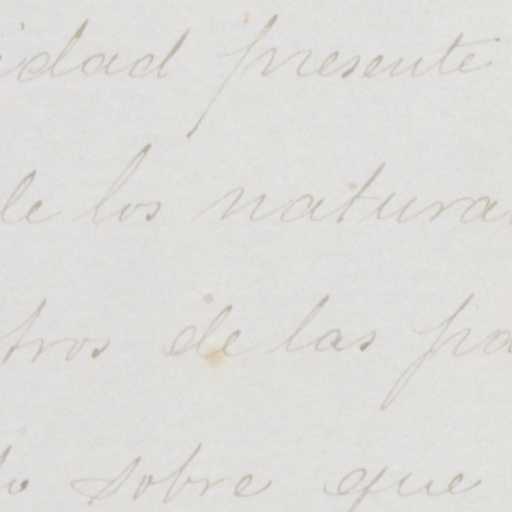 idad presente
de los natura
tros de las pa
lo sobre que